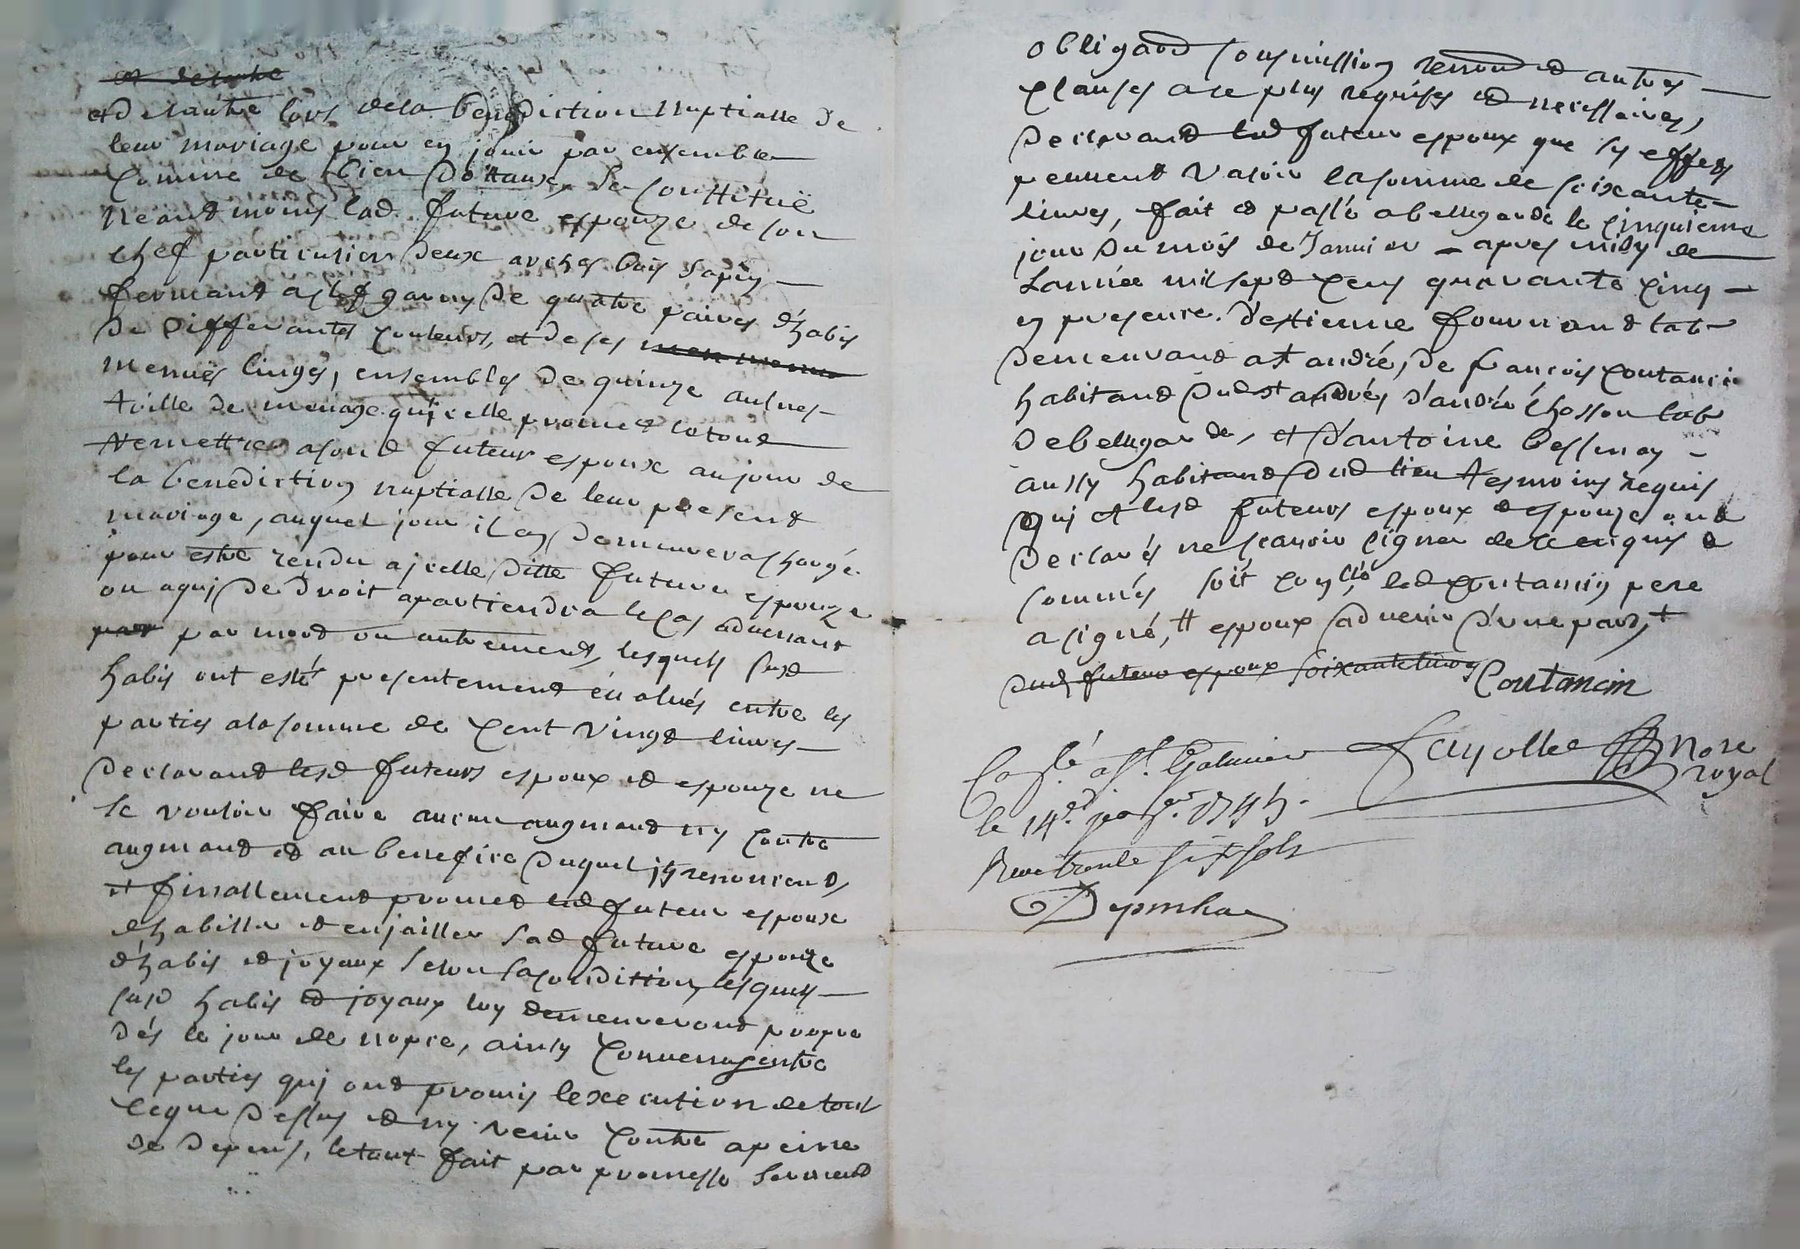 et de lautre lors dela benediction nuptialle de
leur mariage pour en jouir par ensemble
comme de bien dottaux, se constituë
neantmoins lad. future espouze de son
chef particulier deux arches bois sapin
fermant a clef garny de quatre paires d'habis
de differantes couleurs, et de ses
menues linges, ensembles de quinze aulnes
toille de menage qu'jcelle promet le tout
remettre a son d futeur espoux au jour de
la benediction nuptialle de leur present
mariage, auquel jour il en demeurera chargé
pour estre rendu a jcelle ditte future espouze
ou a quj de droit apartiendra le cas advenant
par mord ou autrement, lesquels susd
habis ont esté presentement évalués entre les
parties a la somme de cent vingt livres
declarand lesd futeurs espoux et espouze ne
se vouloir faire aucun augmand ny contre
augmand et au benefice duquel js renoncend,
et finallement promet led futeur espoux
d'habiller et enjailler sad future espouze
d'habis et joyaux selon sa condittion, lesquels
susd habis et joyaux luy demeureront propre
dés le jour de nopce, ainsy convenu entre
les parties quj ont promis lexecution de tout
ce que dessus et ny venir contre a peine
de depens, le tout fait par promesse serment
obligaon soumission renon et autres
clauses a ce plus requises et necessaires,
declarand led futeur espoux que ses effets
peuvent valoir la somme de soixante
livres, fait et passé a bellegarde le cinquieme
jour du mois de Janvier apres midy de
Lannée mil sept cens quarante cinq
en presence d'estienne fournand lab
demeurand a st andré, de francois coutanci
habitand dud st andrés d'andré chosson lab
de bellegarde, et d'antoine bessenay
aussy habitand dud lieu tesmoins requis
quj et lesd futeurs espoux et espouze ont
declarés ne scavoir signer de ce enquis et
sommés soit con.lé led coutancin pere
a signé, tt espoux sadvenir d'une part, +
dud futeur espoux soixante livres Coutancin
Con.lé a St. Galmier Fayolle Nore
royal
le 14.e janer. 1745.
Receu trente six sols
Depinhac